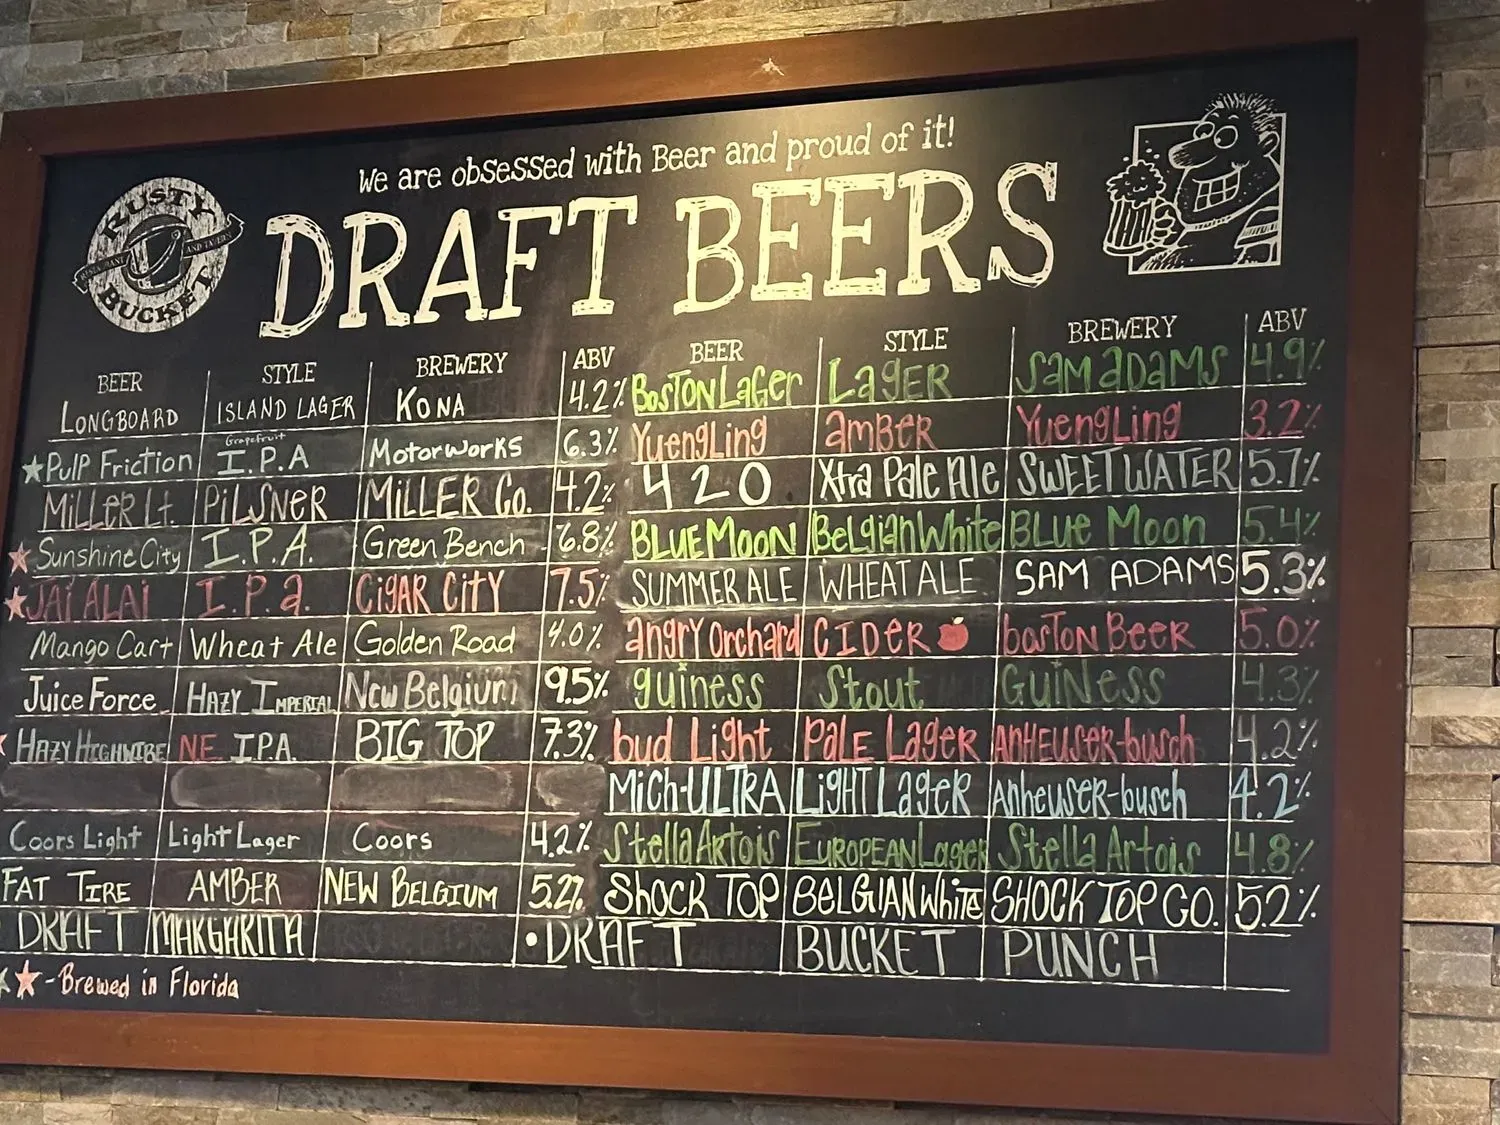 We are obsessed with Beer and proud of it!
DRAFT BEERS
RUSTY
RESTAURANT AND TAVERN
BUCKET
BEER STYLE BREWERY ABV
LONGBOARD ISLAND LAGER KONA 4.2%
★PULP FRICTION Grapefruit I.P.A MOTORWORKS 6.3%
MILLER Lt. PILSNER MILLER Co. 4.2%
★Sunshine City I.P.A. Green Bench 6.8%
★JAI ALAI I.P.a. CIGAR CITY 7.5%
Mango Cart Wheat Ale Golden Road 4.0%
Juice Force HAZY IMPERIAL New Belgium 9.5%
HAZY HIGHWIRE NE IPA. BIG TOP 7.3%
Coors Light Light Lager Coors 4.2%
FAT TIRE AMBER NEW BELGIUM 5.2%
DRAFT MARGARITA
★★-Brewed in Florida
BEER STYLE BREWERY ABV
BOSTON LAGER LAGER SAM ADAMS 4.9%
YuengLing amBER YuengLing 3.2%
420 Xtra Pale Ale SWEETWATER 5.7%
BLUE MOON Belgian White BLUE MOON 5.4%
SUMMER ALE WHEAT ALE SAM ADAMS 5.3%
angry Orchard CIDER bosTon BEER 5.0%
guiness Stout GuiNess 4.3%
bud Light PALE Lager ANHEUSER-busch 4.2%
Mich-ULTRA LIGHT LAGER Anheuser-busch 4.2%
Stella Artois EUROPEAN Lager Stella Artois 4.8%
SHOCK TOP BELGIAN White SHOCK TOP CO. 5.2%
•DRAFT BUCKET PUNCH